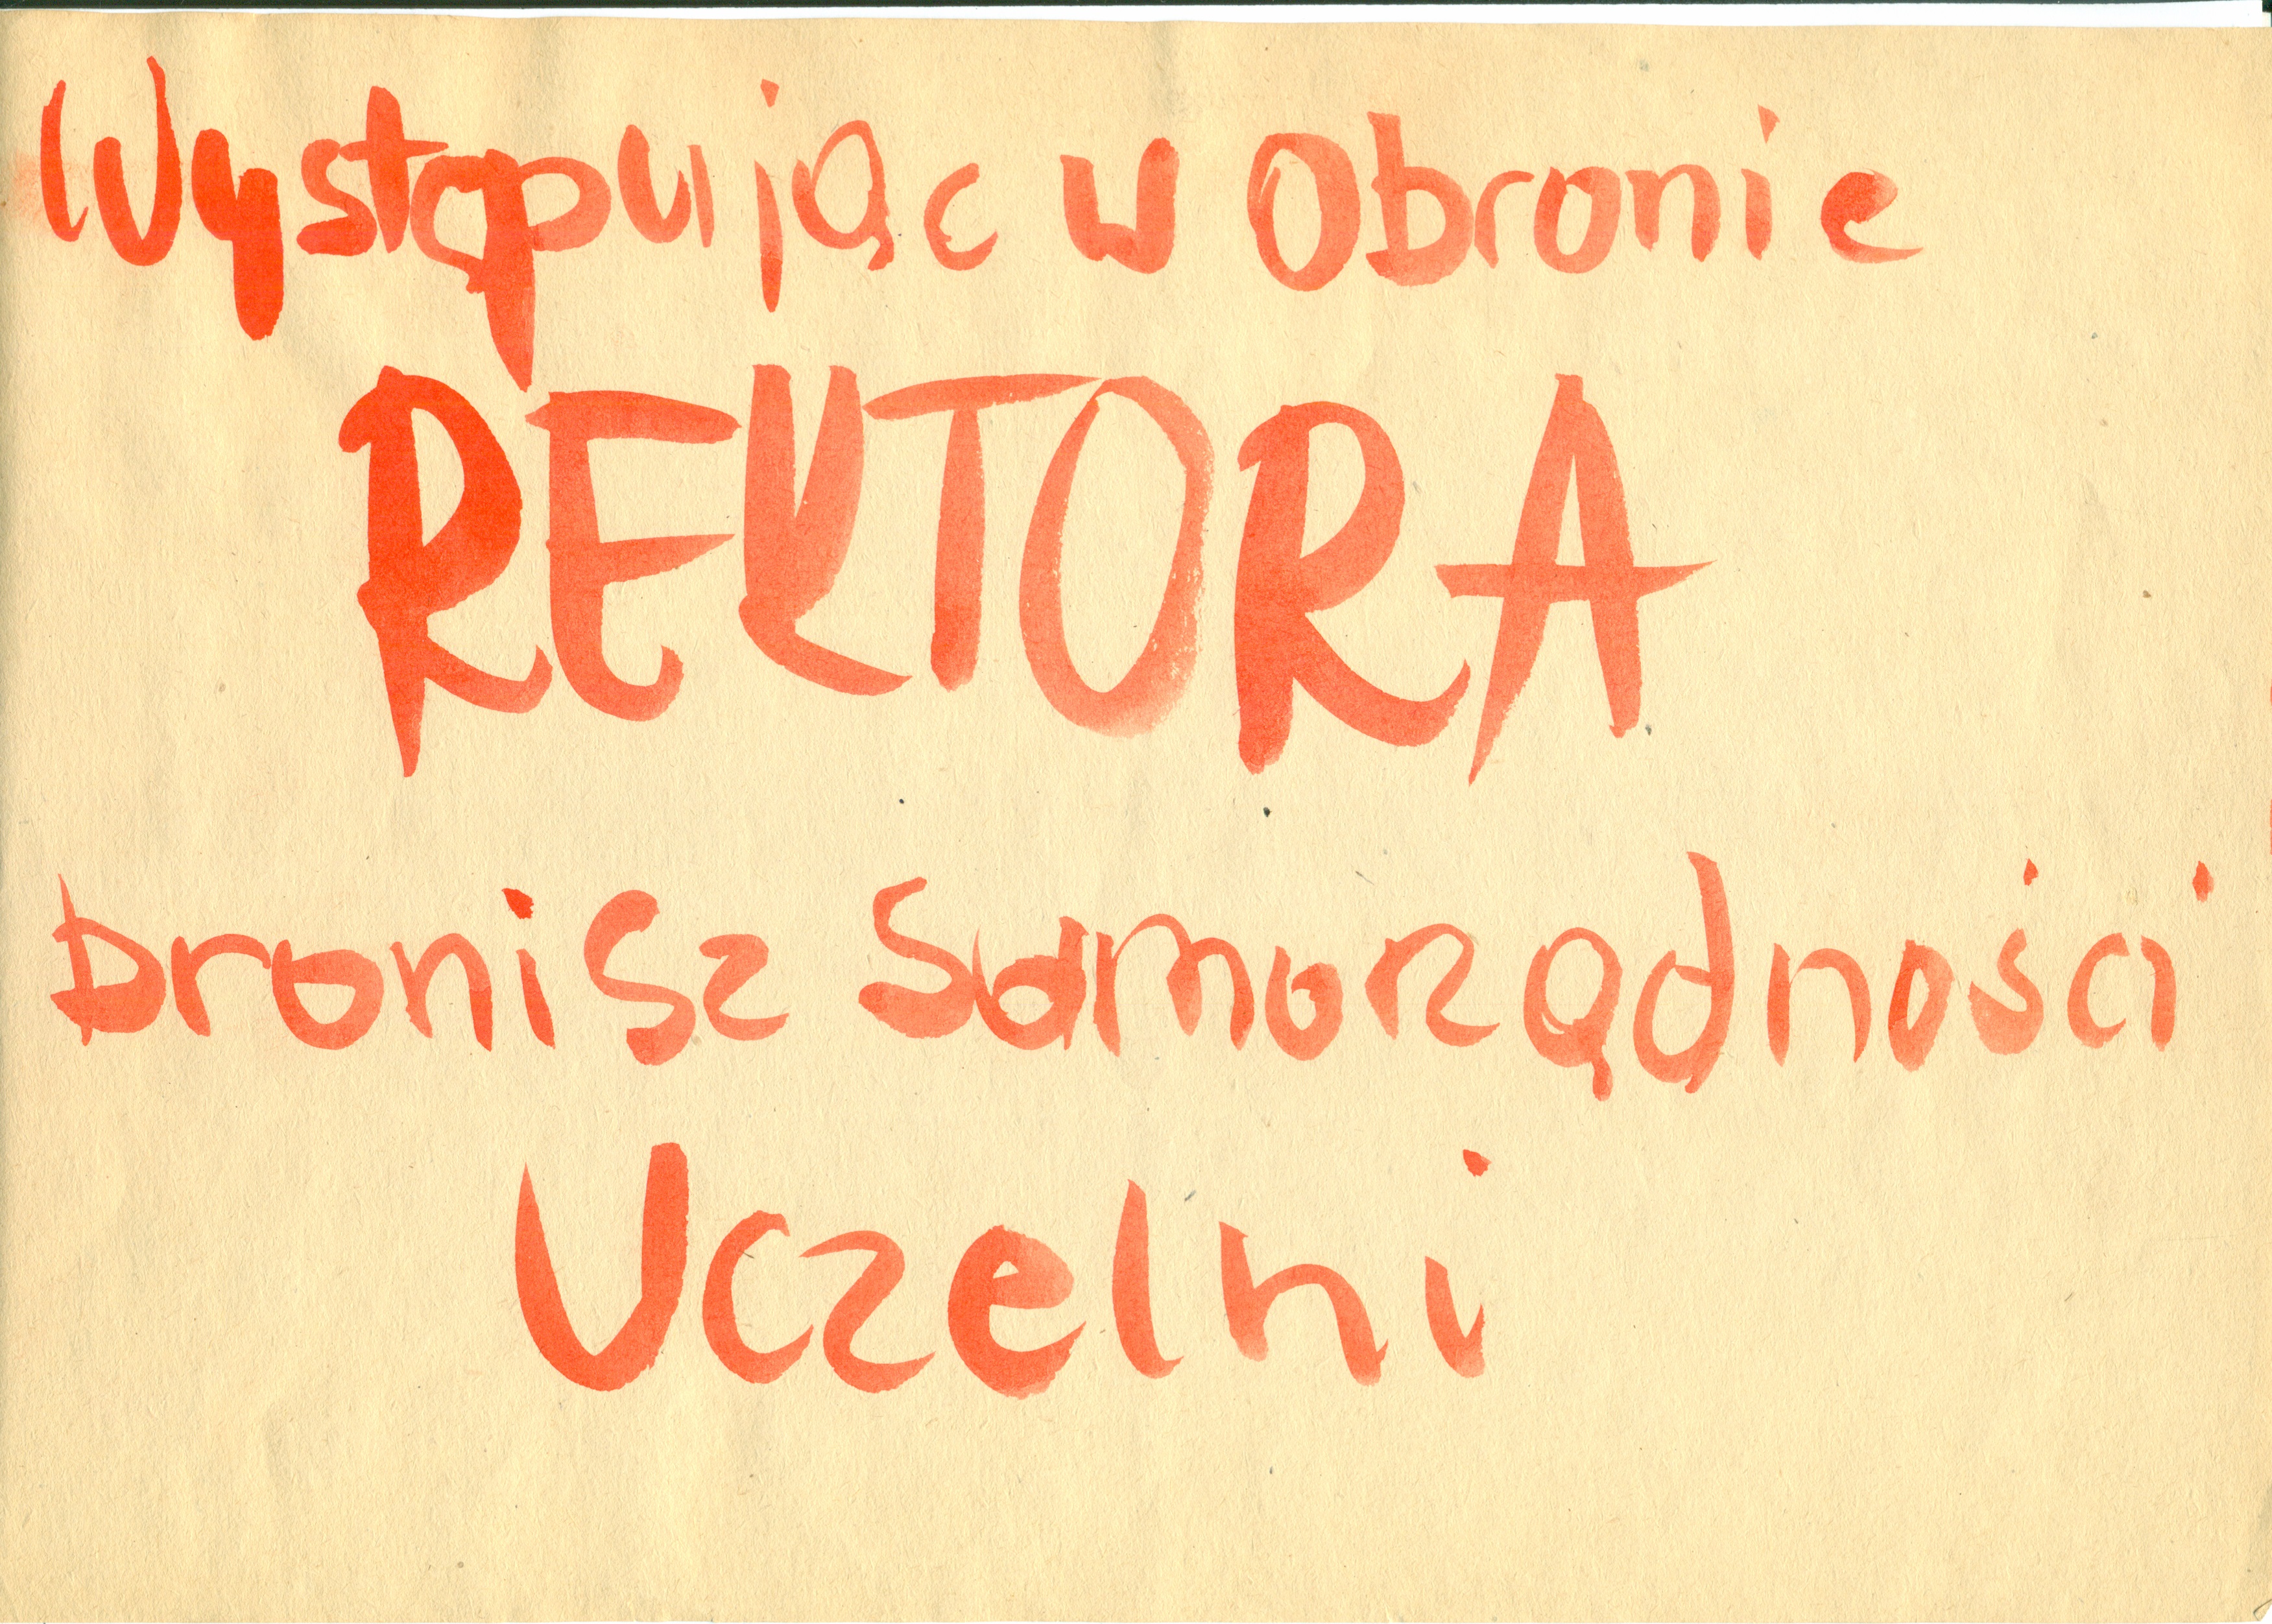 Występując w Obronie
REKTORA
bronisz Samorządności
Uczelni